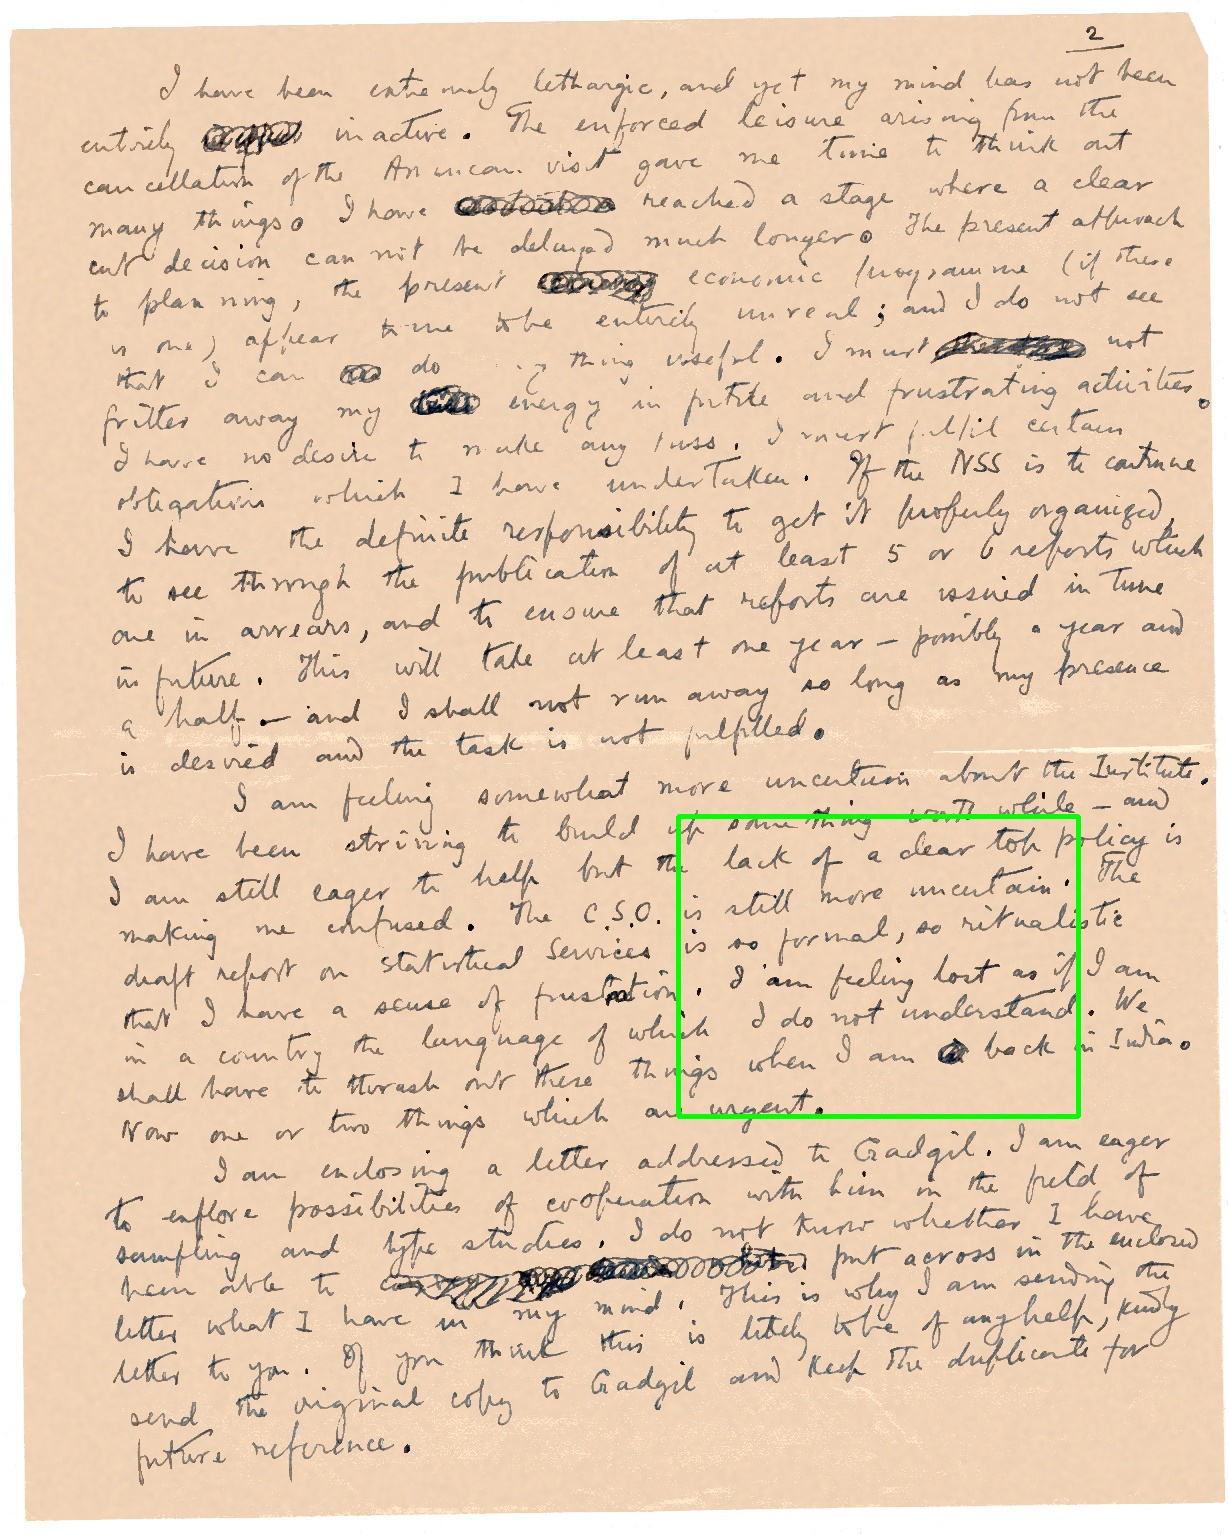 2
I have been extremely lethargic, and yet my mind has not been
entirely inactive. The enforced leisure arising from the
cancellation of the American visit gave me time to think out
many things. I have reached a stage where a clear
cut decision can not be delayed much longer. The present approach
to planning, the present economic programme (if there
is one) appear to me to be entirely unreal; and I do not see
that I can do thing useful. I must not
fritter away my energy in futile and frustrating activities.
I have no desire to make any fuss. I must fulfil certain
obligations which I have undertaken. If the NSS is to continue
I have the definite responsibility to get it properly organized,
to see through the publication of at least 5 or 6 reports which
are in arrears, and to ensure that reports are issued in time
in future. This will take at least one year - possibly a year and
a half - and I shall not run away so long as my presence
is desired and the task is not fulfilled.
I am feeling somewhat more uncertain about the Institute.
I have been striving to build up something worth while - and
I am still eager to help but the lack of a clear top policy is
making me confused. The C.S.O. is still more uncertain. The
draft report on Statistical Services is so formal, so ritualistic
that I have a sense of frustration. I am feeling lost as if I am
in a country the language of which I do not understand. We
shall have to thrash out these things when I am back in India.
Now one or two things which are urgent.
I am enclosing a letter addressed to Gadgil. I am eager
to explore possibilities of cooperation with him in the field of
sampling and type studies. I do not know whether I have
been able to put across in the enclosed
letter what I have in my mind. This is why I am sending the
letter to you. If you think this is likely to be of any help, kindly
send the original copy to Gadgil and keep the duplicate for
future reference.